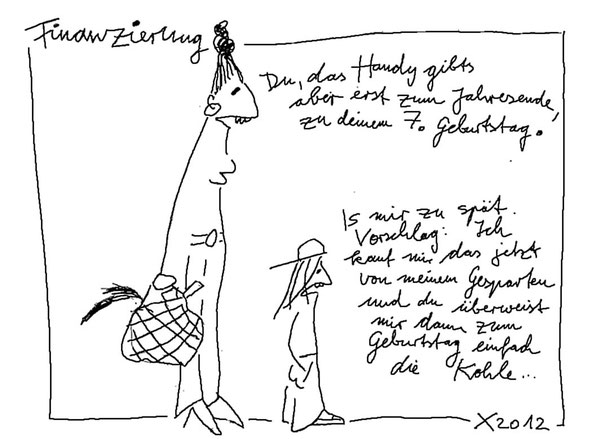 Finanzierung
Du, das Handy gibts
aber erst zum Jahresende,
zu deinem 7. Geburtstag!
Is mir zu spät.
Vorschlag: Ich
kauf mir das jetzt
von meinem Gesparten
und du überweist
mir dann zum
Geburtstag einfach
die Kohle...
X2012